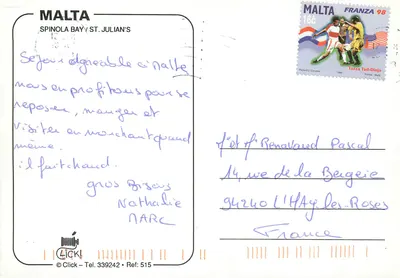 MALTA
SPINOLA BAY ST. JULIAN'S
Séjour agréable à Malte
nous en profitons pour se
reposer, manger et
visiter en marchant quand
même.
il fait chaud.
gros Bisous
Nathalie
MARC
CLICK!
© Click – Tel. 339242 • Ref: 515
MALTA FRANZA 98
M et Mme Renavand Pascal
14, rue de la Bergerie
94240 L'Haÿ les Roses
France